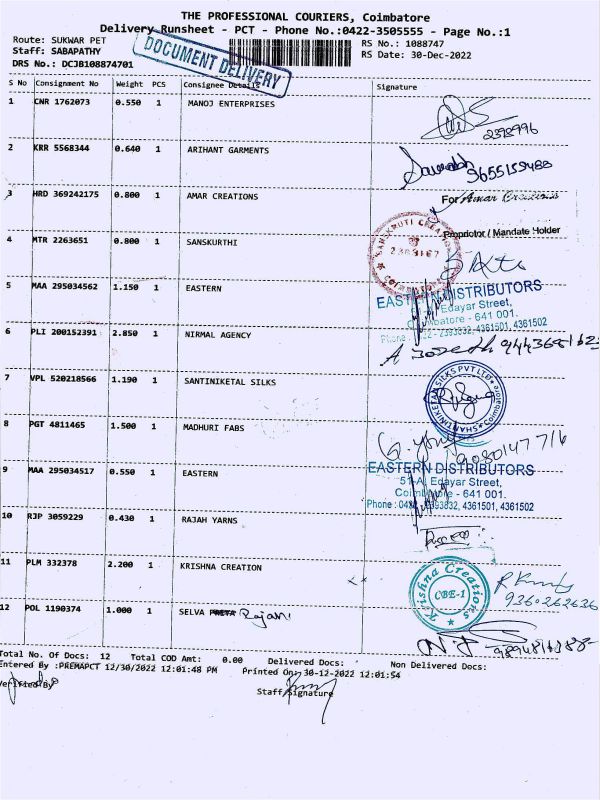 THE PROFESSIONAL COURIERS, Coimbatore
Delivery Runsheet - PCT - Phone No.:0422-3505555 - Page No.:1
Route: SUKWAR PET
RS No.: 1088747
Staff: SABAPATHY
RS Date: 30-Dec-2022
DRS No.: DCJB108874701
DOCUMENT DELIVERY
S No Consignment No Weight PCS Consignee Details Signature
1 CNR 1762073 0.550 1 MANOJ ENTERPRISES
2 KRR 5568344 0.640 1 ARIHANT GARMENTS
3 HRD 369242175 0.800 1 AMAR CREATIONS
For Amar Creations
Proprietor / Mandate Holder
4 MTR 2263651 0.800 1 SANSKURTHI
5 MAA 295034562 1.150 1 EASTERN
EASTERN DISTRIBUTORS
Edayar Street,
Coimbatore - 641 001.
Phone : 0422 - 2393832, 4361501, 4361502
6 PLI 200152391 2.850 1 NIRMAL AGENCY
7 VPL 520218566 1.190 1 SANTINIKETAL SILKS
SHANTINIKETAN SILKS PVT LTD
8 PGT 4811465 1.500 1 MADHURI FABS
9080147716
9 MAA 295034517 0.550 1 EASTERN
EASTERN DISTRIBUTORS
51-A, Edayar Street,
Coimbatore - 641 001.
Phone : 0422 - 2393832, 4361501, 4361502
10 RJP 3059229 0.430 1 RAJAH YARNS
11 PLM 332378 2.200 1 KRISHNA CREATION
Krishna Creations
CBE-1
9360262636
12 POL 1190374 1.000 1 SELVA Rajani
Total No. Of Docs: 12 Total COD Amt: 0.00 Delivered Docs: Non Delivered Docs:
Entered By :PREMAPCT 12/30/2022 12:01:48 PM Printed On: 30-12-2022 12:01:54
Verified By
Staff Signature